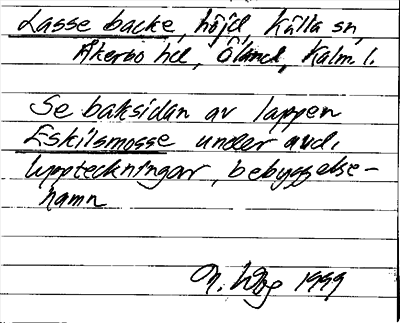 Lasse backe, höjd, Källa sn,
Åkerbo hd, Öland, Kalm l.
Se baksidan av lappen
Eskilsmosse under avd.
uppteckningar, bebyggelse-
namn
1999